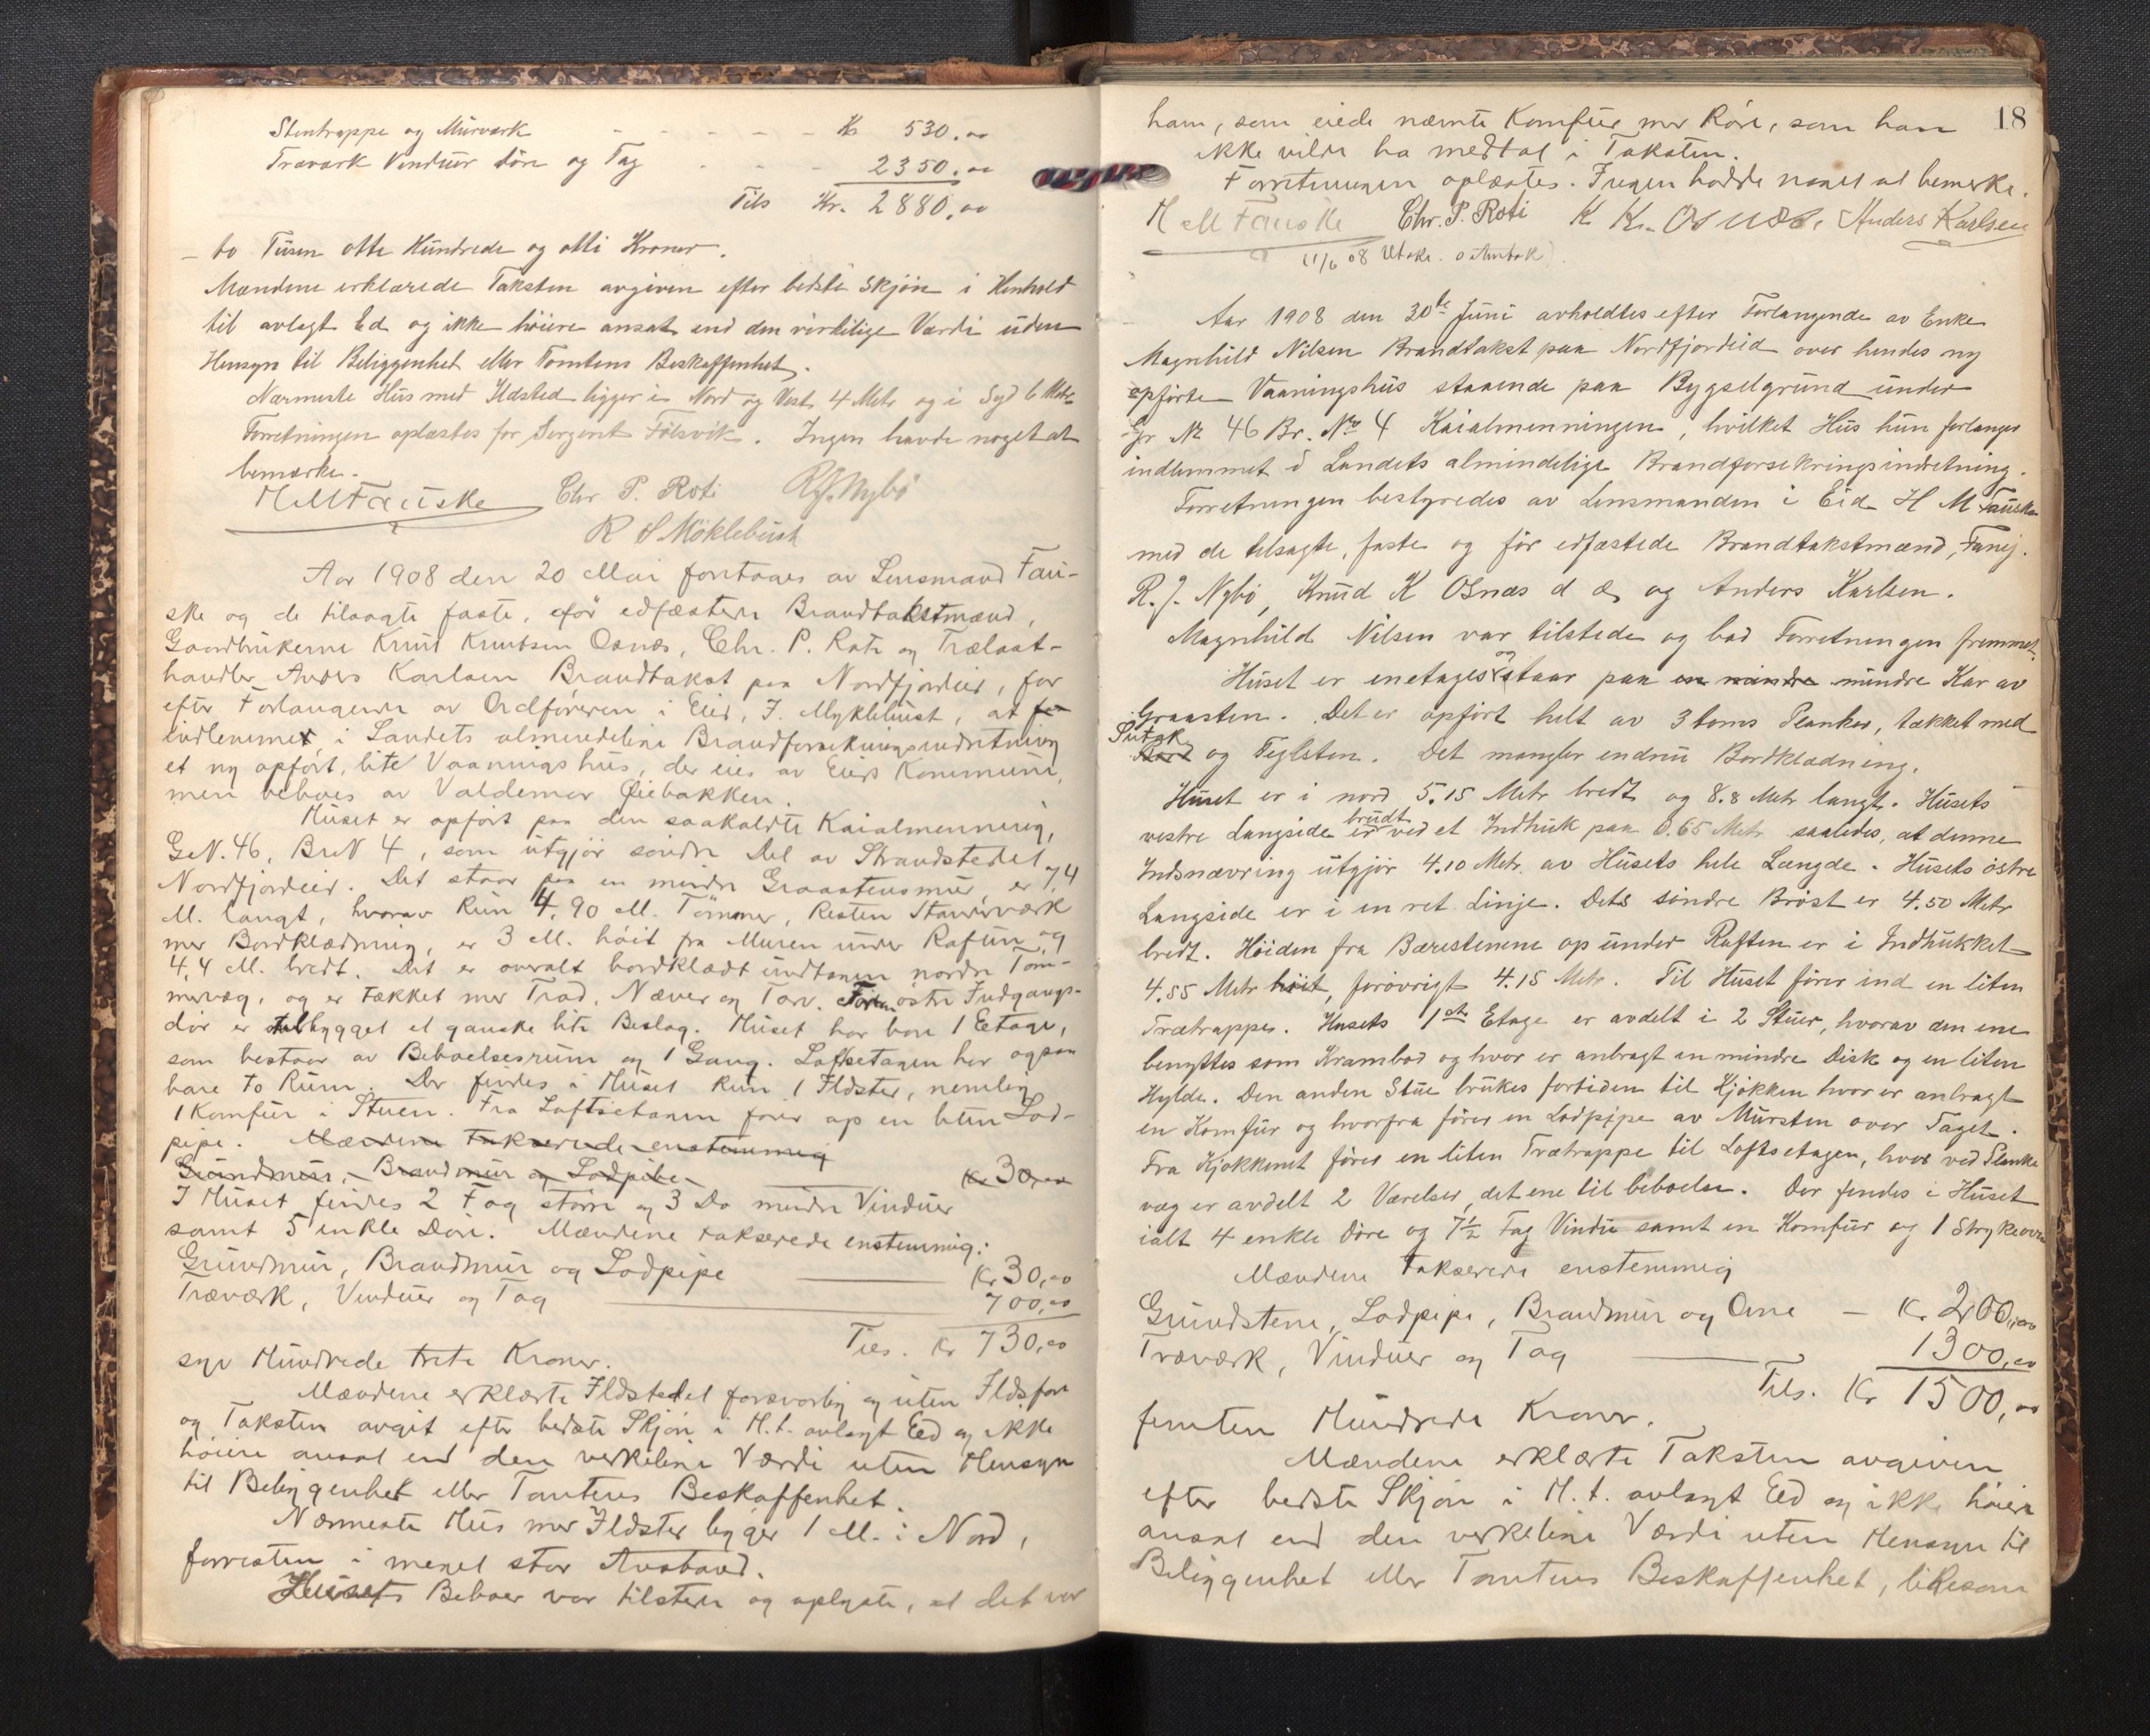 Stentrappe og Murværk - - - - - Kr 530.00
Træværk Vinduer Döre og Tag - - - 2350.00
Tils Kr. 2880.00
- to Tusen otte Hundrede og otti Kroner.
Mændene erklærede Taksten avgiven efter bedste Skjön i Henhold
til avlagt Ed og ikke höiere ansat end den virkelige Værdi uden
Hensyn til Beliggenhet eller Tomtens Beskaffenhet.
Nærmeste Hus med Ildsted ligger i Nord og Vest 4 Metr og i Syd 6 Metr
Forretningen oplæstes for Sergent Fölsvik. Ingen havde noget at
bemærke.
H M Fauske Chr P. Roti R J. Nybö
R S Möklebust
Aar 1908 den 20 Mai foretoges av Lensmand Fau-
ske og de tilsagte faste, för edfæstede Brandtakstmænd,
Gaardbrukerne Knut Knutsen Osnæs, Chr. P. Roti og Trælast-
handler Anders Karlsen Brandtakst paa Nordfjordeid, for
efter Forlangende av Ordföreren i Eid, J. Myklebust, at faa
indlemmet i Landets almindelige Brandforsikringsindretning
et ny opfört, lite Vaaningshus, der eies av Eids Kommune,
men beboes av Valdemar Öiebakken.
Huset er opfört paa den saakaldte Kaialmenning,
G.N. 46, BrN 4, som utgjör söndre Del av Strandstedet
Nordfjordeid. Det staar paa en mindre Graastensmur, er 7,4
M. langt, hvorav kun 4,90 M. Tömmer, Resten Stavrværk
med Bordklædning, er 3 M. höit fra Muren under Rafun og
4,4 M. bredt. Det er overalt bordklædt undtagen nordre Töm-
mervæg, og er tækket med Trod, Næver og Torv. Foran östre Indgangs-
dör er tilbygget et ganske lite Beslag. Huset har bare 1 Eetage,
som bestaar av Beboelsesrum og 1 Gang. Loftsetagen har ogsaa
bare to Rum. Der findes i Huset kun 1 Ildsted, nemlig
1 Komfur i Stuen. Fra Loftsetagen förer op en liten Lod-
pipe. Mændene takserede enstemmig
Grundmur, Brandmur og Lodpibe - Kr 30,00
I Huset findes 2 Fag större og 3 Do mindre Vinduer
samt 5 enkle Döre. Mændene takserede enstemmig:
Grundmur, Brandmur og Lodpipe Kr 30,00
Træværk, Vinduer og Tag 700,00
Tils. Kr 730,00
syv Hundrede treti Kroner.
Mændene erklærte Ildstedet forsvarlig og uten Ildsfare
og Taksten avgit efter bedste Skjön i H.t. avlagt Eed og ikke
höiere ansat end den verkelige Værdi uten Hensyn
til Beliggenhet eller Tomtens Beskaffenhet.
Nærmeste Hus med Ildsted ligger 1 M. i Nord,
forresten i meget stor Avstand.
Husets Beboer var tilstede og oplyste, at det var
18
ham, som eiede nævnte Komfur med Röre, som han
ikke vilde ha medtat i Taksten.
Forretningen oplæstes. Ingen hadde noget at bemerke.
H M Fauske Chr. P. Roti K K. Osnæs, Anders Karlsen
11/6 08 Utskr.
Aar 1908 den 30te Juni avholdtes efter Forlangende av Enke
Magnhild Nilsen Brandtakst paa Nordfjordeid over hendes ny
opförte Vaaningshus staaende paa Bygselgrund under
Gr No 46 Br. No 4 Kaialmenningen, hvilket Hus hun forlanger
indlemmet i Landets almindelige Brandforsekringsindretning.
Forretningen bestyredes av Lensmanden i Eid H M Fauske
med de tilsagte, faste og för edfæstede Brandtakstmænd, Fanej.
R. J. Nybö, Knud K Osnæs d æ, og Anders Karlsen.
Magnhild Nilsen var tilstede og bad Forretningen fremmet.
Huset er enetages og staar paa en mindre mindre Kar av
Graasten. Det er opfört helt av 3 toms Planker, tækket med
Sutak
Bord og Teglsten. Det mangler endnu Bordklædning.
Huset er i nord 5.15 Metr bredt og 8.8 Metr langt. Husets
vestre Langside er brudt ved et Indhuk paa 0.65 Metr saaledes, at denne
Indsnævring utgjör 4.10 Metr. av Husets hele Længde. Husets östre
Langside er i en ret Linje. Dets söndre Bröst er 4.50 Metr
bredt. Höiden fra Bærestenene op under Raften er i Indhukket
4.55 Metr höit, forövrigt 4.15 Metr. Til Huset förer ind en liten
Trætrappe. Husets 1ste Etage er avdelt i 2 Stuer, hvorav den ene
benyttes som Krambod og hvor er anbragt en mindre Disk og en liten
Hylde. Den anden Stue brukes fortiden til Kjökken hvor er anbragt
en Komfur og hvorfra förer en Lodpipe av Mursten over Taget.
Fra Kjökkenet förer en liten Trætrappe til Loftsetagen, hvor ved Planke
væg er avdelt 2 Værelser, det ene til beboelse. Der findes i Huset
ialt 4 enkle Döre og 7½ Fag Vindu samt en Komfur og 1 Strykeovn
Mændene takserede enstemmig
Grundstene, Lodpipe, Brandmur og Ovne - Kr. 200,00
Træværk, Vinduer og Tag 1300,00
Tils. Kr 1500,00
femten Hundrede Kroner.
Mændene erklærte Taksten avgiven
efter bedste Skjön i H.t. avlagt Eed og ikke höiere
ansat end den verkelige Værdi uten Hensyn til
Beliggenhet eller Tomtens Beskaffenhet, likesom